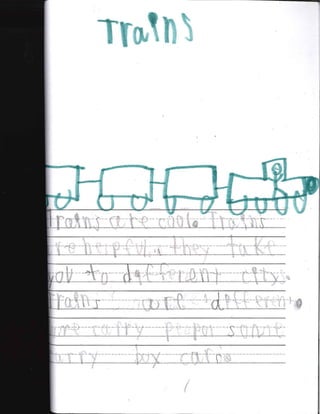 Trains
trains are cool. Trains
re helpful. they take
you to different citys.
Trains are different.
me carry peepol some
arry box cars.